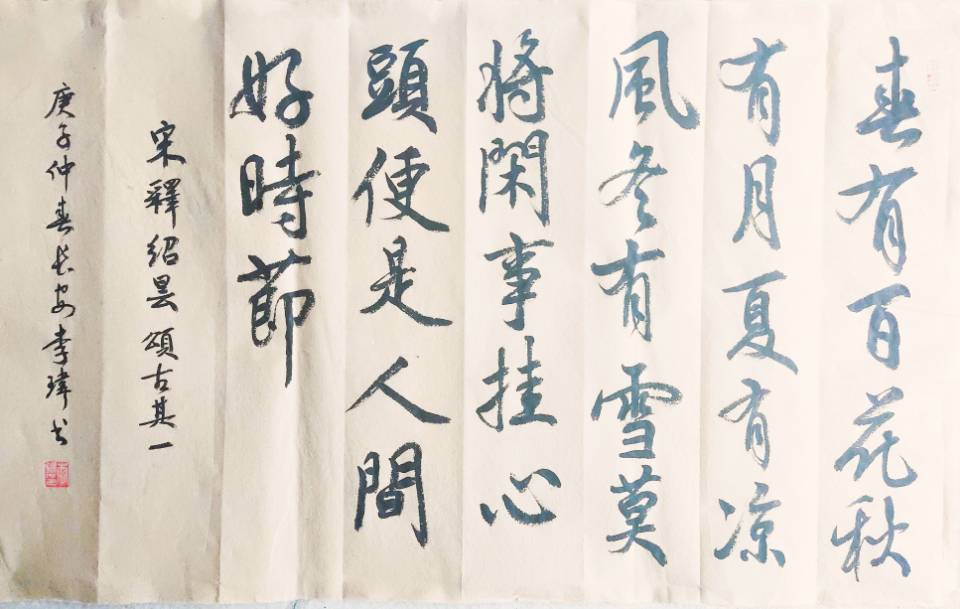 春有百花秋
有月夏有凉
風冬有雪莫
将閑事挂心
頭便是人間
好時節
宋釋紹曇頌古其一
庚子仲春长安李瑋书